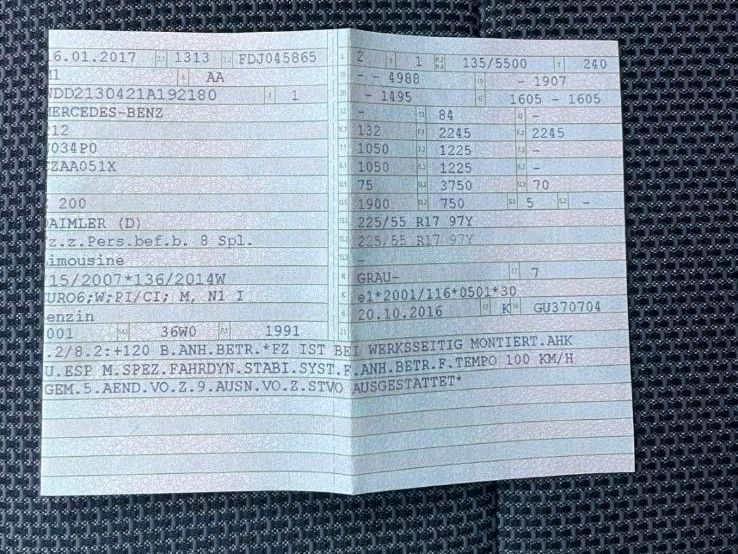 6.01.2017 1313 FDJ045865
M1 AA
WDD2130421A192180 1
MERCEDES-BENZ
212
J034P0
ZAA051X
200
DAIMLER (D)
Fz.z.Pers.bef.b. 8 Spl.
Limousine
15/2007*136/2014W
EURO6;W;PI/CI; M, N1 I
Benzin
001 36W0 1991
.2/8.2:+120 B.ANH.BETR.*FZ IST BEI WERKSSEITIG MONTIERT.AHK
U.ESP M.SPEZ.FAHRDYN.STABI.SYST.F.ANH.BETR.F.TEMPO 100 KM/H
GEM.5.AEND.VO.Z.9.AUSN.VO.Z.STVO AUSGESTATTET*
2 1 135/5500 240
- - 4988 - 1907
- 1495 1605 - 1605
- 84 -
132 2245 2245
1050 1225 -
1050 1225 -
75 3750 70
1900 750 5 -
225/55 R17 97Y
225/55 R17 97Y
-
GRAU- 7
e1*2001/116*0501*30
20.10.2016 K GU370704